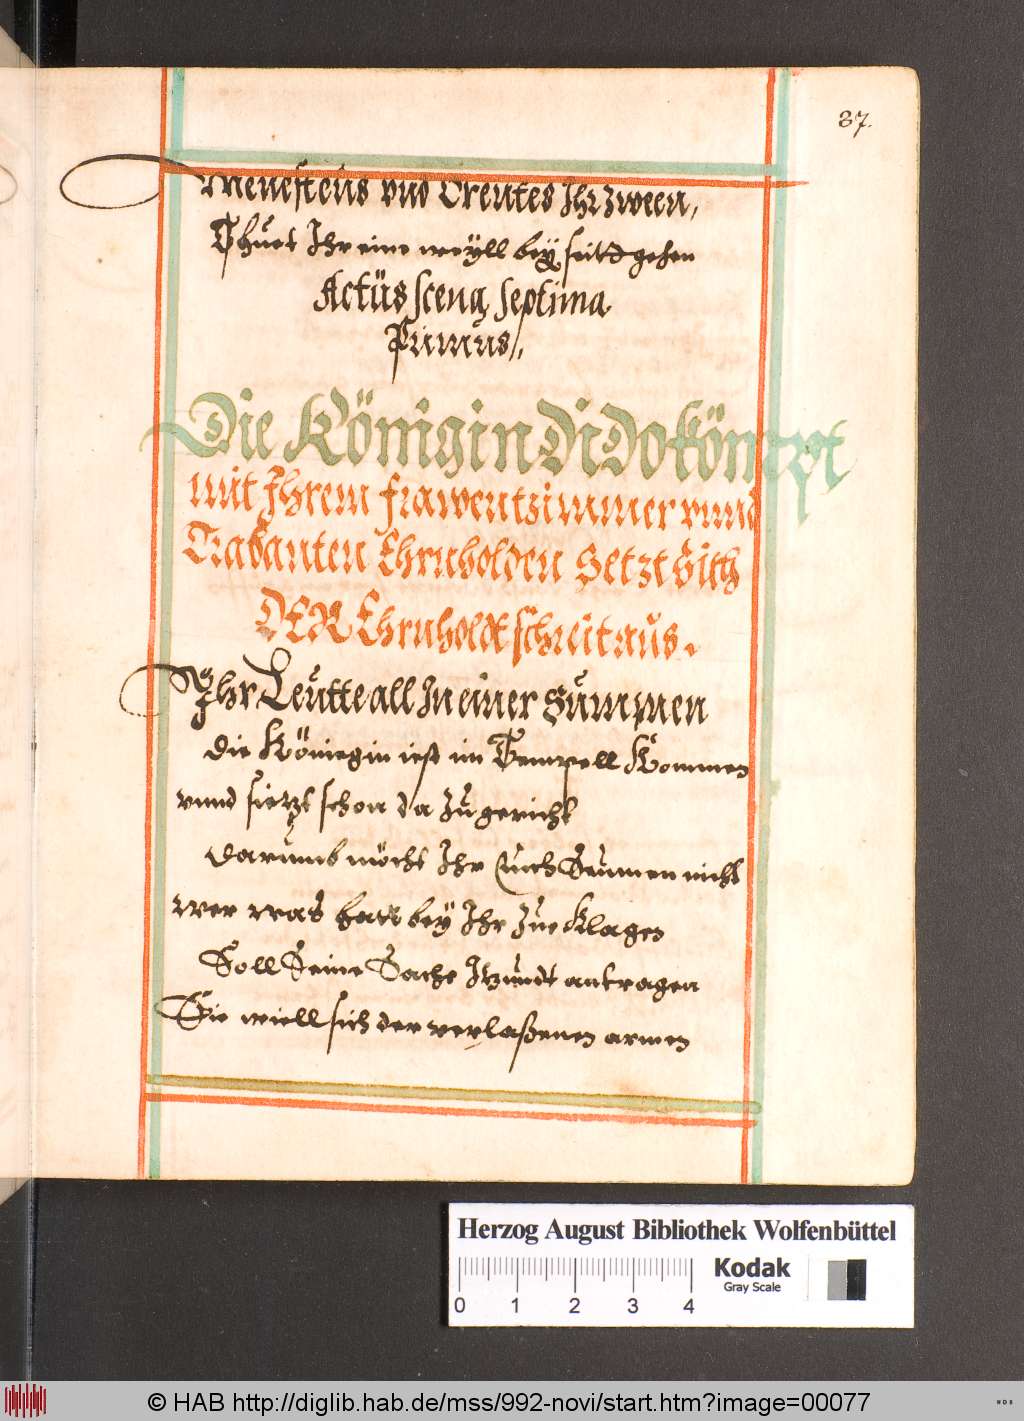 37.
Menesteus vnd Orentes Ihr zween,
Thuet Ihr eine weyll bey seitt gehen
Actüs scena Septima
Primüs,,
Die Königin Dido kömpt
mit Ihrem frawentzimmer vnnd
Trabanten Ehrnholden Setzt sich
DER Ehrnholdt schreit aus.
Ihr Leütte all In einer Sümmen
die Köniegin iest im Tempell Kommen
vnnd sietzt schon da zu gericht
darumb möcht Ihr Euch Seumen nicht
wer was hatt bey Ihr Zue Klagen
Soll Seine Sache Itzundt antragen
Sie wiell sich der verlaßenen armen
Herzog August Bibliothek Wolfenbüttel
Kodak
Gray Scale
0 1 2 3 4
© HAB http://diglib.hab.de/mss/992-novi/start.htm?image=00077